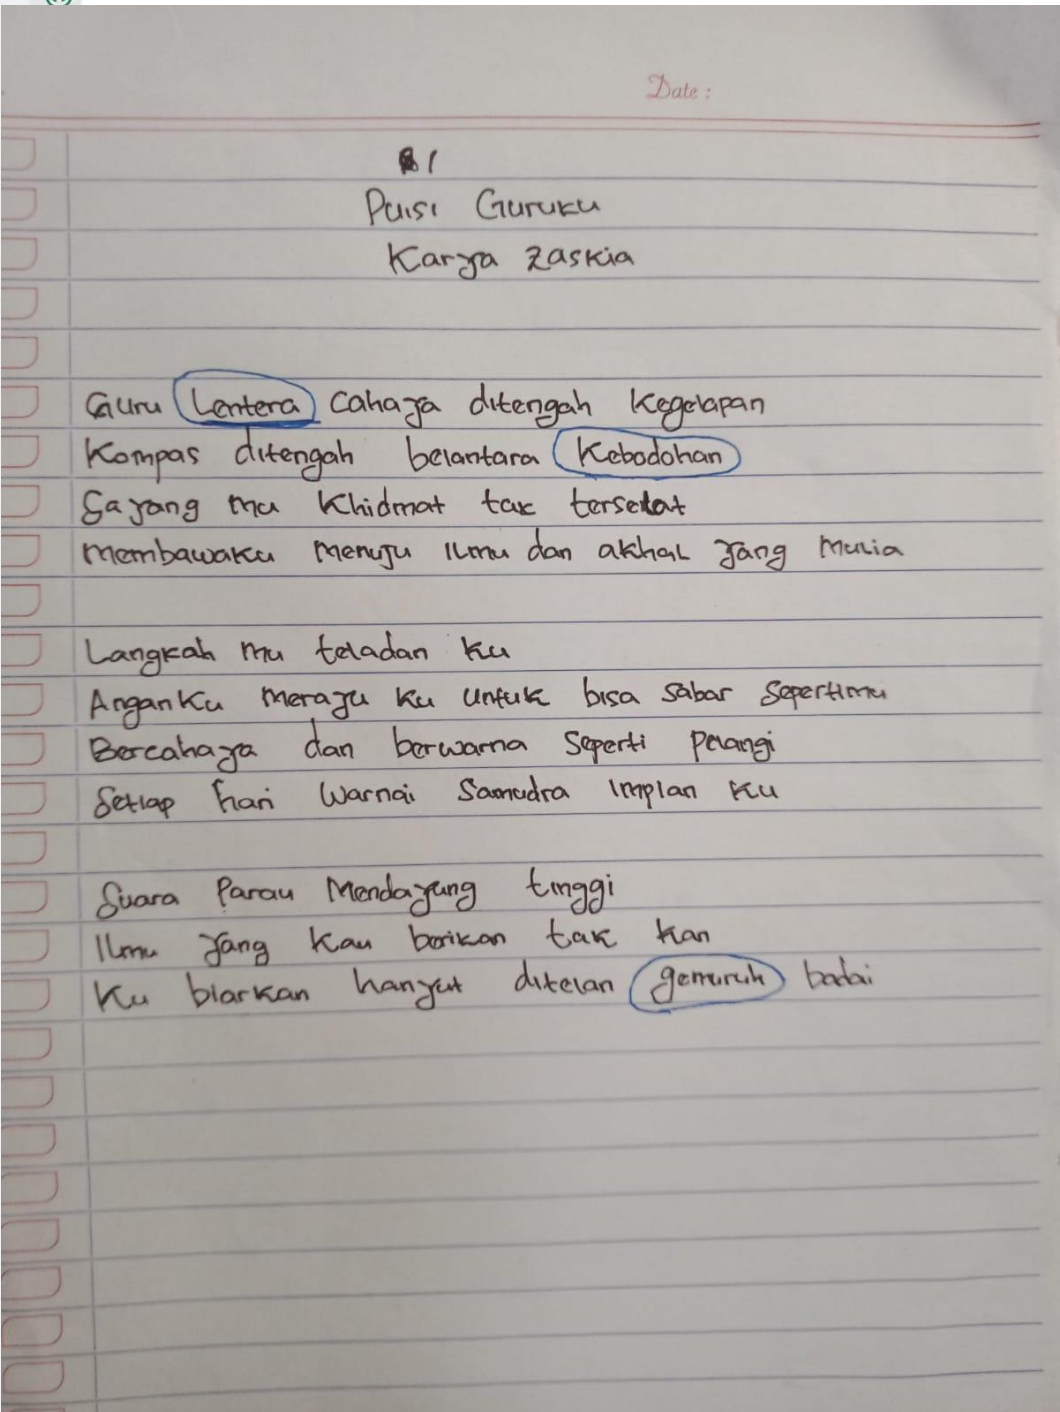 Date :
1
Puisi Guruku
Karya Zaskia
Guru Lentera Cahaya ditengah Kegelapan
Kompas ditengah belantara Kebodohan
Sayang mu Khidmat tak
Membawaku Menuju Ilmu dan akhal yang Mulia
Langkah mu teladan Ku
AnganKu merayu Ku untuk bisa sabar sepertimu
Bercahaya dan berwarna Seperti Pelangi
Setiap hari Warnai Samudra Impian Ku
Suara Parau Mendayung tinggi
Ilmu yang Kau berikan tak kan
Ku biarkan hanyut ditelan gemuruh badai